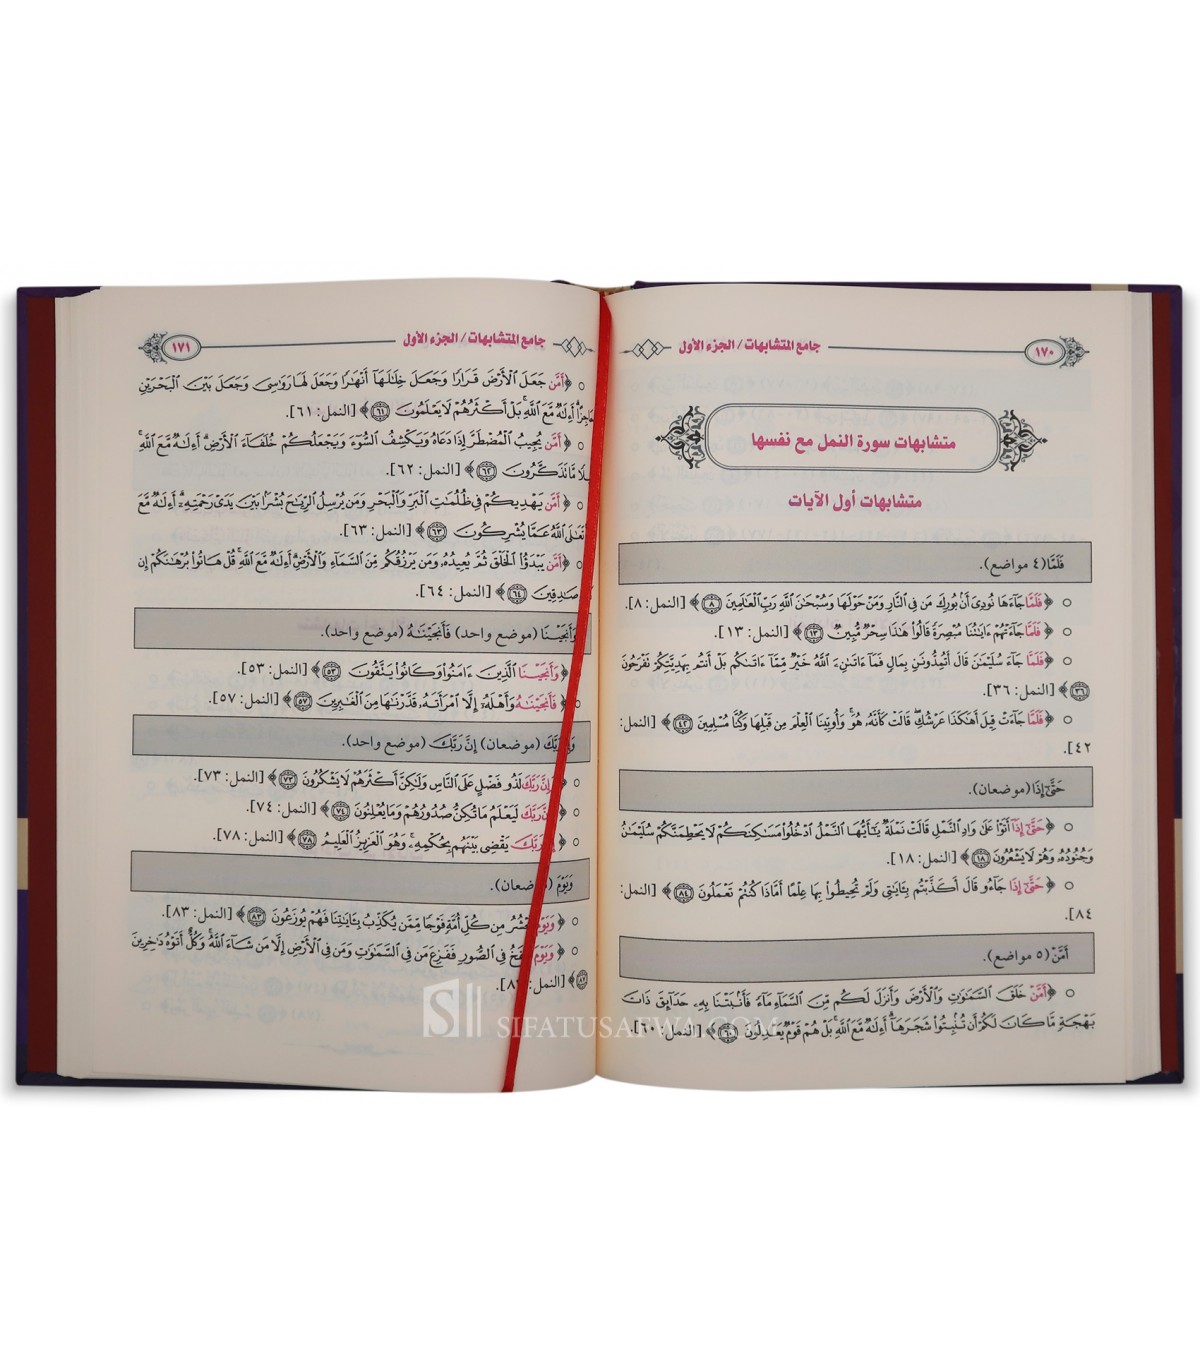 ١٧٠
جامع المتشابهات/ الجزء الأول
متشابهات سورة النمل مع نفسها
متشابهات أول الآيات
فَلَمَّا (٤ مواضع).
﴿فَلَمَّا جَآءَهَا نُودِىَ أَنۢ بُورِكَ مَن فِى ٱلنَّارِ وَمَنْ حَوْلَهَا وَسُبْحَٰنَ ٱللَّهِ رَبِّ ٱلْعَٰلَمِينَ ٨﴾ [النمل: ٨].
﴿فَلَمَّا جَآءَتْهُمْ ءَايَٰتُنَا مُبْصِرَةً قَالُوا۟ هَٰذَا سِحْرٌ مُّبِينٌ ١٣﴾ [النمل: ١٣].
﴿فَلَمَّا جَآءَ سُلَيْمَٰنَ قَالَ أَتُمِدُّونَنِ بِمَالٍ فَمَآ ءَاتَىٰنِۦَ ٱللَّهُ خَيْرٌ مِّمَّآ ءَاتَىٰكُم بَلْ أَنتُم بِهَدِيَّتِكُمْ تَفْرَحُونَ
٣٦﴾ [النمل: ٣٦].
﴿فَلَمَّا جَآءَتْ قِيلَ أَهَٰكَذَا عَرْشُكِ قَالَتْ كَأَنَّهُۥ هُوَ وَأُوتِينَا ٱلْعِلْمَ مِن قَبْلِهَا وَكُنَّا مُسْلِمِينَ ٤٢﴾ [النمل:
٤٢].
حَتَّىٰٓ إِذَا (موضعان).
﴿حَتَّىٰٓ إِذَآ أَتَوْا۟ عَلَىٰ وَادِ ٱلنَّمْلِ قَالَتْ نَمْلَةٌ يَٰٓأَيُّهَا ٱلنَّمْلُ ٱدْخُلُوا۟ مَسَٰكِنَكُمْ لَا يَحْطِمَنَّكُمْ سُلَيْمَٰنُ
وَجُنُودُهُۥ وَهُمْ لَا يَشْعُرُونَ ١٨﴾ [النمل: ١٨].
﴿حَتَّىٰٓ إِذَا جَآءُو قَالَ أَكَذَّبْتُم بِـَٔايَٰتِى وَلَمْ تُحِيطُوا۟ بِهَا عِلْمًا أَمَّاذَا كُنتُمْ تَعْمَلُونَ ٨٤﴾ [النمل:
٨٤].
أَمَّنْ (٥ مواضع).
﴿أَمَّنْ خَلَقَ ٱلسَّمَٰوَٰتِ وَٱلْأَرْضَ وَأَنزَلَ لَكُم مِّنَ ٱلسَّمَآءِ مَآءً فَأَنۢبَتْنَا بِهِۦ حَدَآئِقَ ذَاتَ
بَهْجَةٍ مَّا كَانَ لَكُمْ أَن تُنۢبِتُوا۟ شَجَرَهَآ أَءِلَٰهٌ مَّعَ ٱللَّهِ بَلْ هُمْ قَوْمٌ يَعْدِلُونَ ٦٠﴾ [النمل: ٦٠].
جامع المتشابهات/ الجزء الأول
١٧١
﴿أَمَّن جَعَلَ ٱلْأَرْضَ قَرَارًا وَجَعَلَ خِلَٰلَهَآ أَنْهَٰرًا وَجَعَلَ لَهَا رَوَٰسِىَ وَجَعَلَ بَيْنَ ٱلْبَحْرَيْنِ
حَاجِزًا أَءِلَٰهٌ مَّعَ ٱللَّهِ بَلْ أَكْثَرُهُمْ لَا يَعْلَمُونَ ٦١﴾ [النمل: ٦١].
﴿أَمَّن يُجِيبُ ٱلْمُضْطَرَّ إِذَا دَعَاهُ وَيَكْشِفُ ٱلسُّوٓءَ وَيَجْعَلُكُمْ خُلَفَآءَ ٱلْأَرْضِ أَءِلَٰهٌ مَّعَ ٱللَّهِ
مَّا تَذَكَّرُونَ ٦٢﴾ [النمل: ٦٢].
﴿أَمَّن يَهْدِيكُمْ فِى ظُلُمَٰتِ ٱلْبَرِّ وَٱلْبَحْرِ وَمَن يُرْسِلُ ٱلرِّيَٰحَ بُشْرًۢا بَيْنَ يَدَىْ رَحْمَتِهِۦٓ أَءِلَٰهٌ مَّعَ
تَعَٰلَى ٱللَّهُ عَمَّا يُشْرِكُونَ ٦٣﴾ [النمل: ٦٣].
﴿أَمَّن يَبْدَؤُا۟ ٱلْخَلْقَ ثُمَّ يُعِيدُهُۥ وَمَن يَرْزُقُكُم مِّنَ ٱلسَّمَآءِ وَٱلْأَرْضِ أَءِلَٰهٌ مَّعَ ٱللَّهِ قُلْ هَاتُوا۟ بُرْهَٰنَكُمْ إِن
صَٰدِقِينَ ٦٤﴾ [النمل: ٦٤].
وَأَنجَيْنَا (موضع واحد) فَأَنجَيْنَٰهُ (موضع واحد).
﴿وَأَنجَيْنَا ٱلَّذِينَ ءَامَنُوا۟ وَكَانُوا۟ يَتَّقُونَ ٥٣﴾ [النمل: ٥٣].
﴿فَأَنجَيْنَٰهُ وَأَهْلَهُۥٓ إِلَّا ٱمْرَأَتَهُۥ قَدَّرْنَٰهَا مِنَ ٱلْغَٰبِرِينَ ٥٧﴾ [النمل: ٥٧].
وَإِنَّ رَبَّكَ (موضعان) إِنَّ رَبَّكَ (موضع واحد).
وَإِنَّ رَبَّكَ لَذُو فَضْلٍ عَلَى ٱلنَّاسِ وَلَٰكِنَّ أَكْثَرَهُمْ لَا يَشْكُرُونَ ٧٣﴾ [النمل: ٧٣].
وَإِنَّ رَبَّكَ لَيَعْلَمُ مَا تُكِنُّ صُدُورُهُمْ وَمَا يُعْلِنُونَ ٧٤﴾ [النمل: ٧٤].
﴿إِنَّ رَبَّكَ يَقْضِى بَيْنَهُم بِحُكْمِهِۦ وَهُوَ ٱلْعَزِيزُ ٱلْعَلِيمُ ٧٨﴾ [النمل: ٧٨].
وَيَوْمَ (موضعان).
﴿وَيَوْمَ نَحْشُرُ مِن كُلِّ أُمَّةٍ فَوْجًا مِّمَّن يُكَذِّبُ بِـَٔايَٰتِنَا فَهُمْ يُوزَعُونَ ٨٣﴾ [النمل: ٨٣].
﴿وَيَوْمَ يُنفَخُ فِى ٱلصُّورِ فَفَزِعَ مَن فِى ٱلسَّمَٰوَٰتِ وَمَن فِى ٱلْأَرْضِ إِلَّا مَن شَآءَ ٱللَّهُ وَكُلٌّ أَتَوْهُ دَٰخِرِينَ
﴾ [النمل:
SIFATUSAFWA.COM